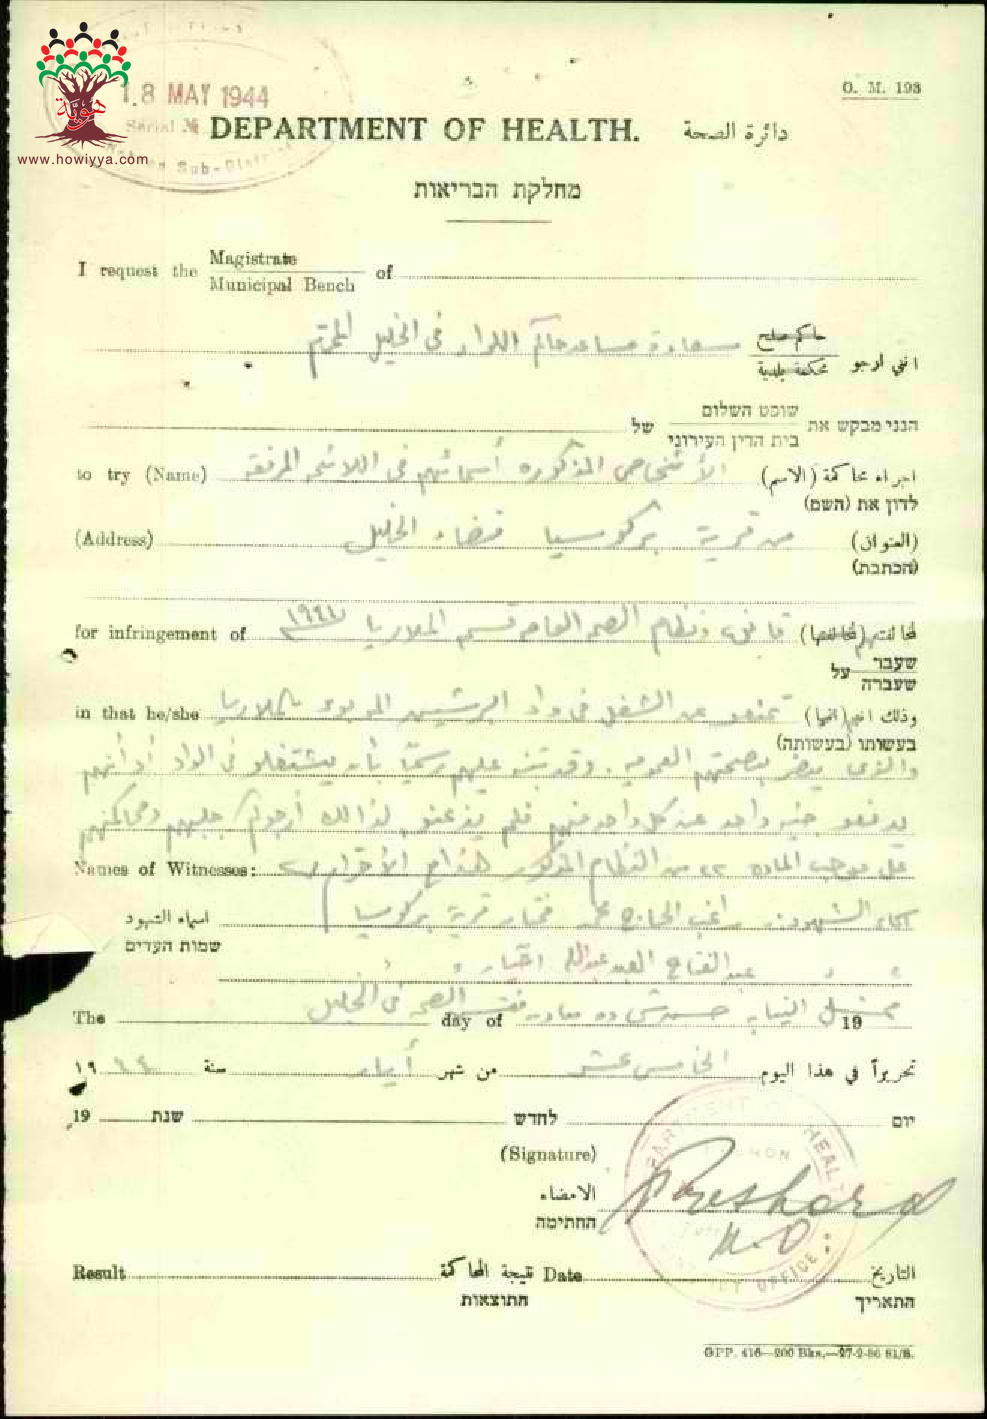 هوية
www.howiyya.com
18 MAY 1944
Serial №
Sub-District
O. M. 193
DEPARTMENT OF HEALTH. دائرة الصحة
מחלקת הבריאות
I request the Magistrate
Municipal Bench of
انني ارجو حاكم صلح
محكمة بلدية سعادة مساعد حاكم اللواء في الخليل المحترم
הנני מבקש את שופט השלום
בית הדין העירוני של
to try (Name) الأشخاص المذكوره أسمائهم في اللائحه المرفقه اجراء محاكمة (الاسم)
לדון את (השם)
(Address) من قرية بركوسيا قضاء الخليل (العنوان)
(הכתבת)
for infringement of قانون ونظام الصحه العامه قسم الملاريا
שעבר
שעברה על
in that he/she الشغل في واد الموبوء بالملاريا وذلك انهم (انها)
בעשותו (בעשותה)
والذي يضر بصحتهم العموميه. وقد تنبه عليهم رسميا بأن يشتغلو في الواد أو أنهم
يدفعو جنيه واحد عن كل واحد منهم فلم يذعنو لذالك أرجوكم جلبهم ومحاكمتهم
Names of Witnesses: على موجب الماده ٢٢ من النظام المذكور
اسماء الشهود راغب الحاج محمد مختار قرية بركوسيا
שמות העדים
عبد الفتاح العبد عبدالله اختيار
The day of 19
الصحه في الخليل
تحريراً في هذا اليوم الخامس عشر من شهر أيار سنة ١٩٤٤
יום לחדש שנת 19
(Signature)
الامضاء
החתימה
M.O
DEPARTMENT HEALTH
OFFICE
Result نتيجة المحاكمة Date التاريخ
התוצאות התאריך
GPP. 416—200 Bks.—27-2-36 S1/S.